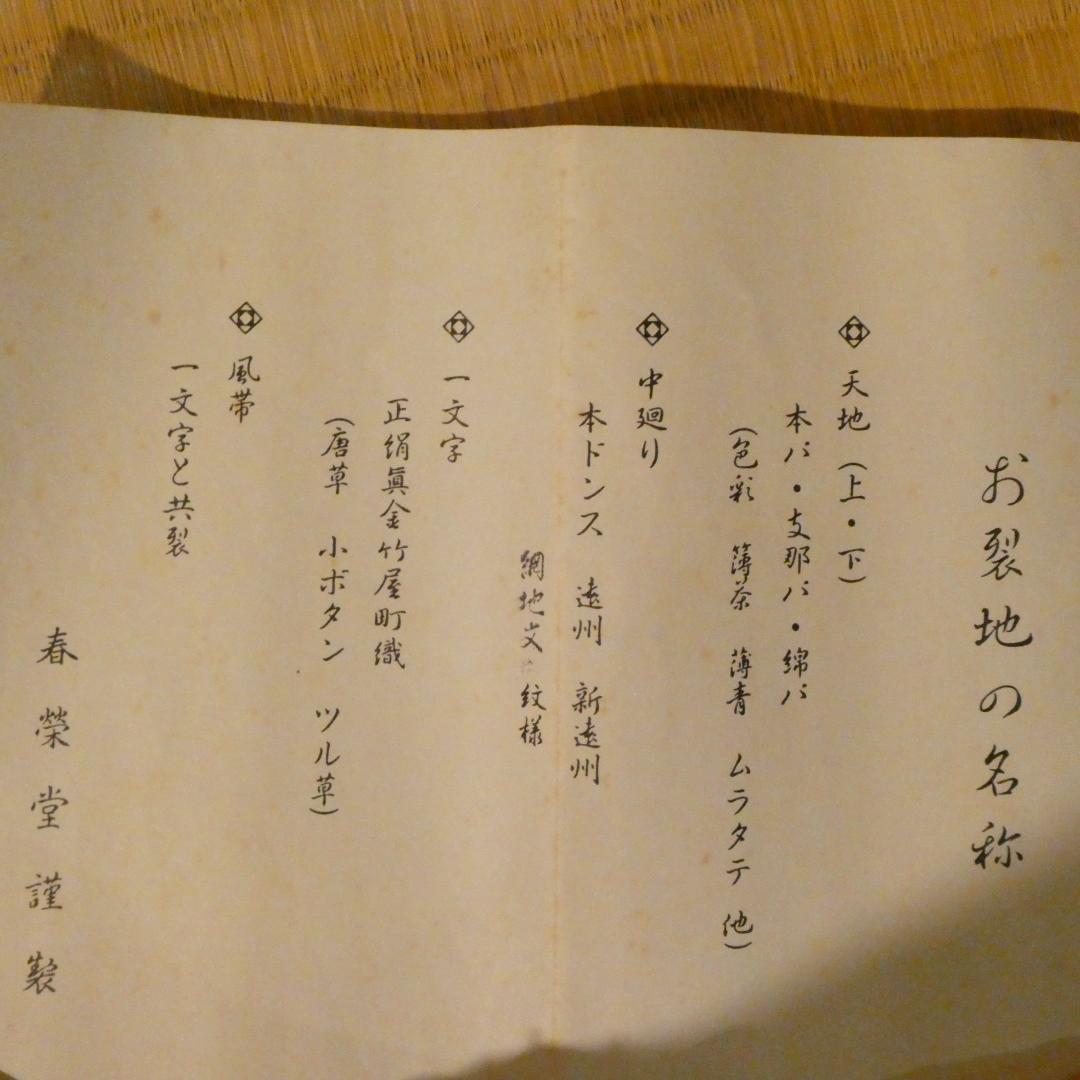 お裂地の名称
天地(上・下)
本パ・支那パ・綿パ
(色彩 簿茶 薄青 ムラタテ 他)
中廻り
本ドンス 遠州 新遠州
網地文 紋様
一文字
正絹眞金竹屋町織
(唐草 小ボタン ツル草)
風帯
一文字と共裂
春榮堂謹製